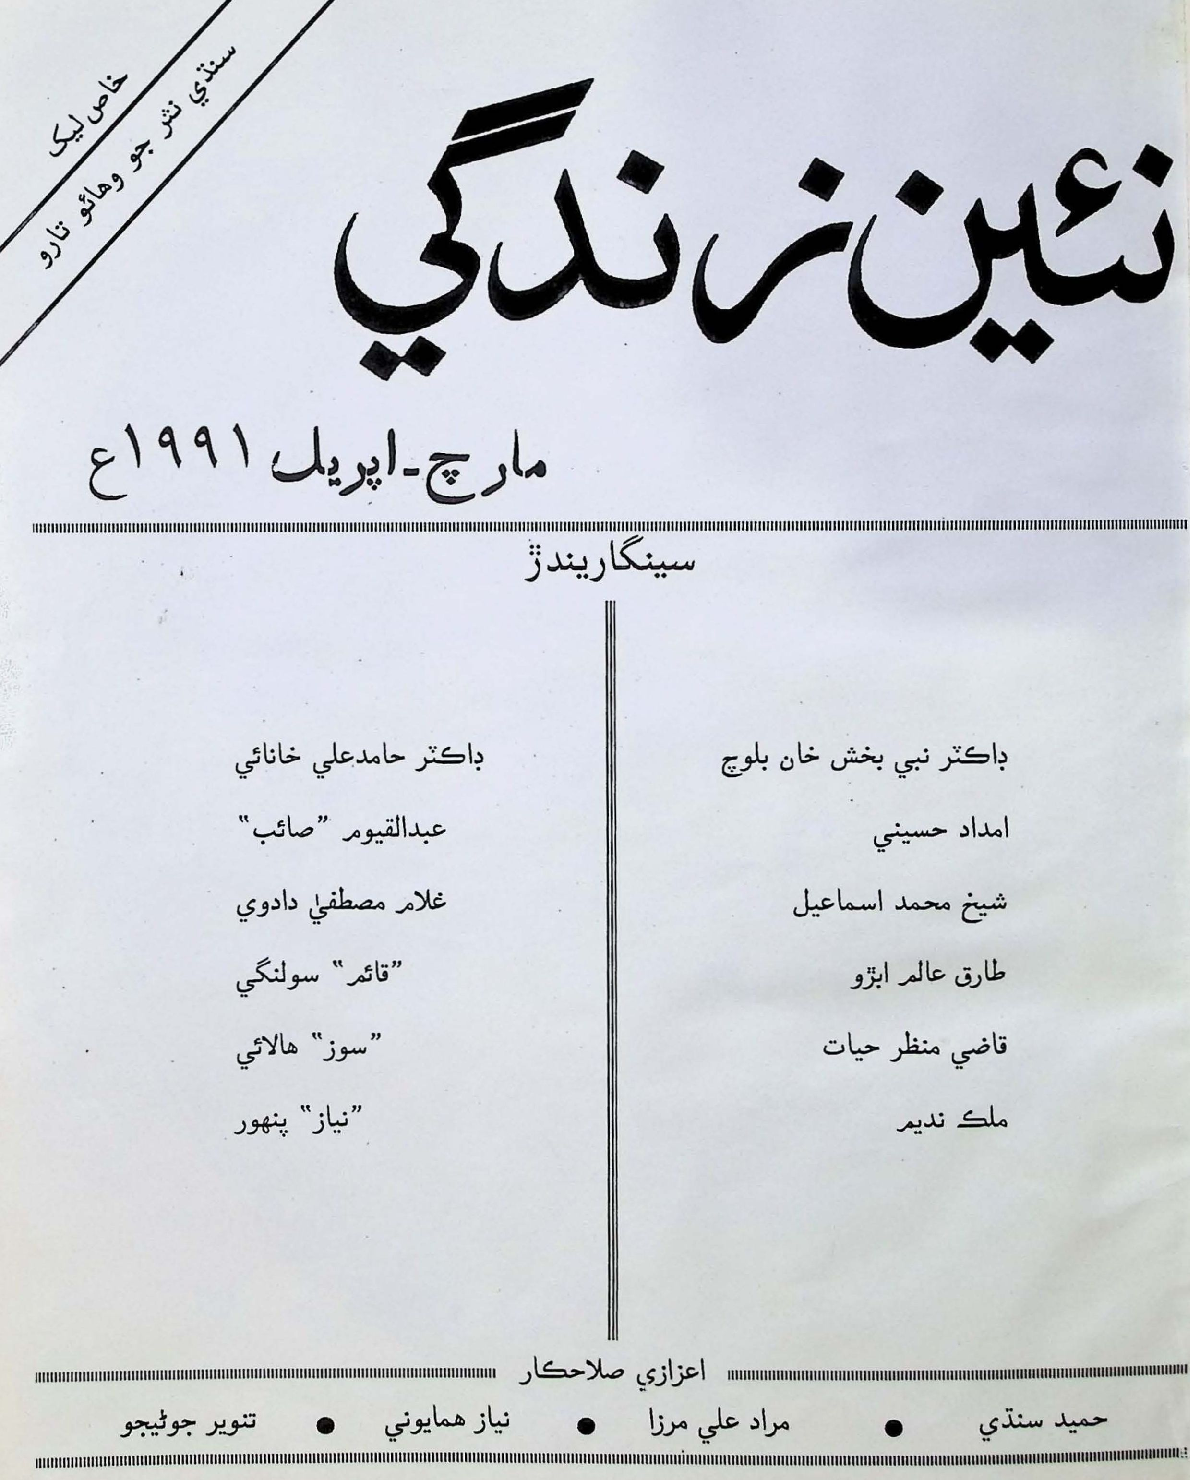 خاص ليک
سنڌي نثر جو وهائو تارو
نئين زندگي
مارچ۔اپريل ١٩٩١ع
سينگاريندڙ
ڊاڪٽر نبي بخش خان بلوچ
امداد حسيني
شيخ محمد اسماعيل
طارق عالم ابڙو
قاضي منظر حيات
ملڪ نديم
ڊاڪٽر حامد علي خانائي
عبدالقيوم ”صائب“
غلام مصطفيٰ دادوي
”قائم“ سولنگي
”سوز“ هالائي
”نياز“ پنهور
اعزازي صلاحڪار
حميد سنڌي ● مراد علي مرزا ● نياز همايوني ● تنوير جوڻيجو